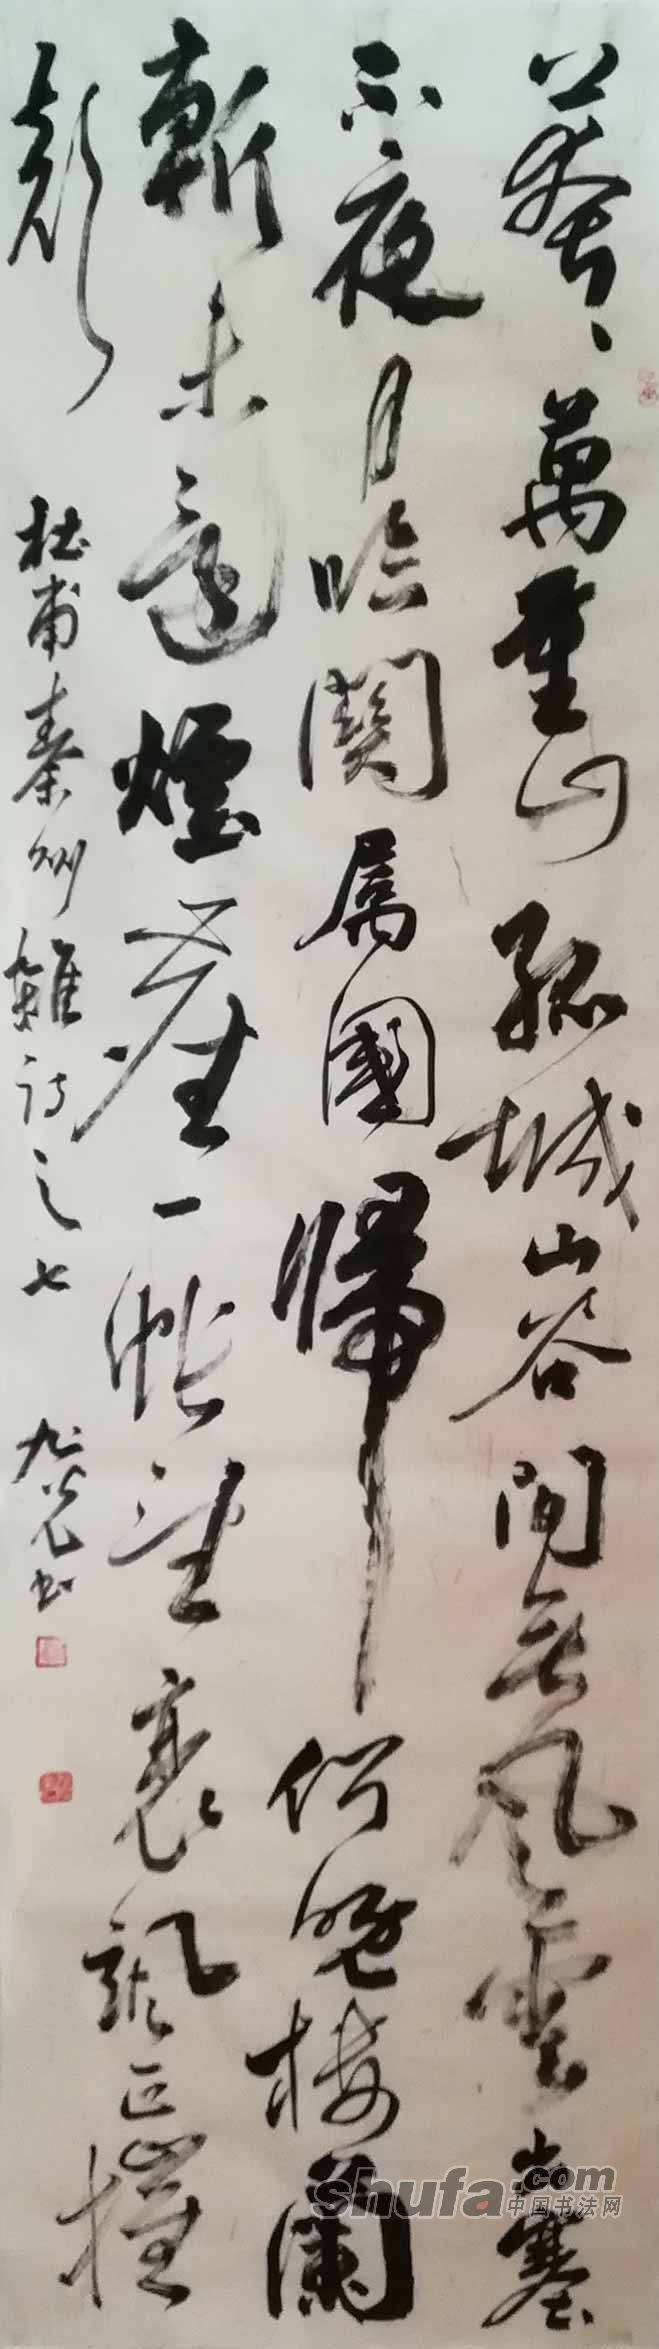 莽〻萬重山孤城山谷間無風雲出塞
不夜月臨關属國歸何晚楼蘭
斬未還煙塵一悵望衰颯正摧
顏
杜甫秦州雜诗之七
书
shufa.com
中国书法网